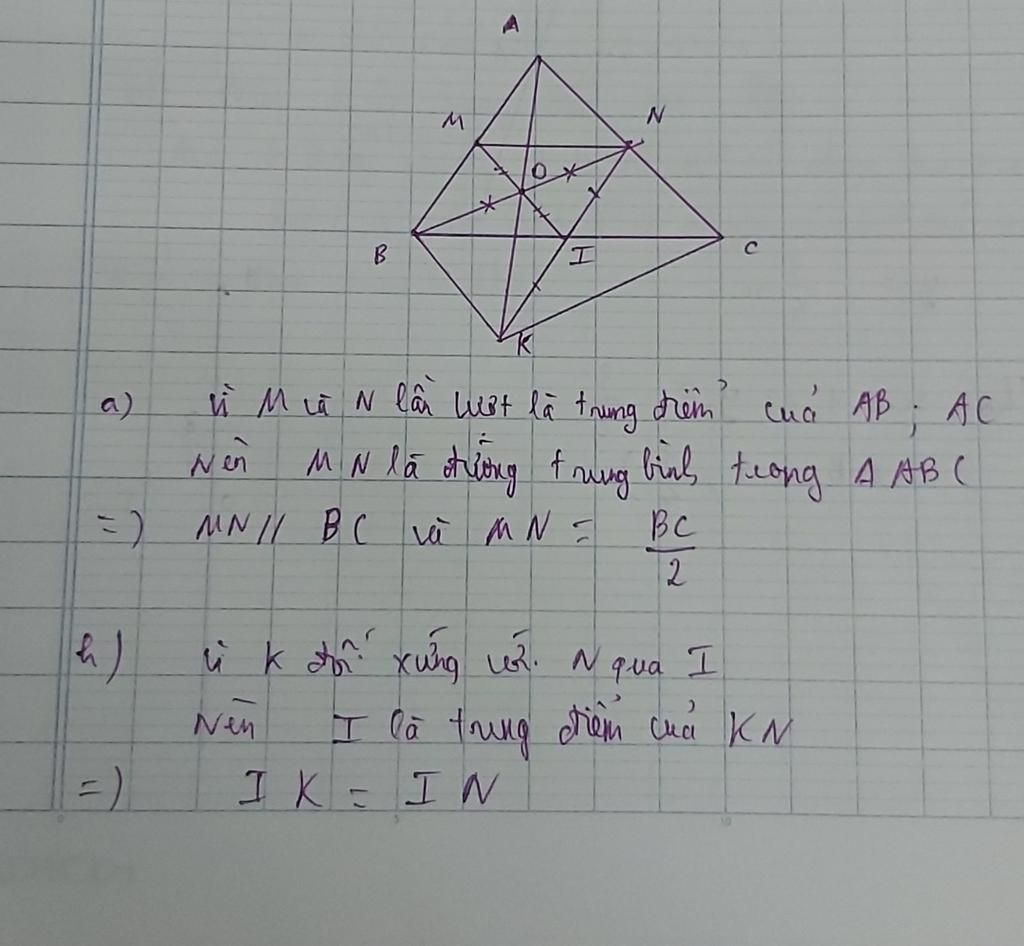 A
M
N
O
B
I
C
K
a) Vì M và N lần lượt là trung điểm của AB ; AC
Nên MN là đường trung bình trong Δ ABC
=) MN // BC và MN = BC/2
b) Vì K đối xứng với N qua I
Nên I là trung điểm của KN
=) IK = IN
0 5 10